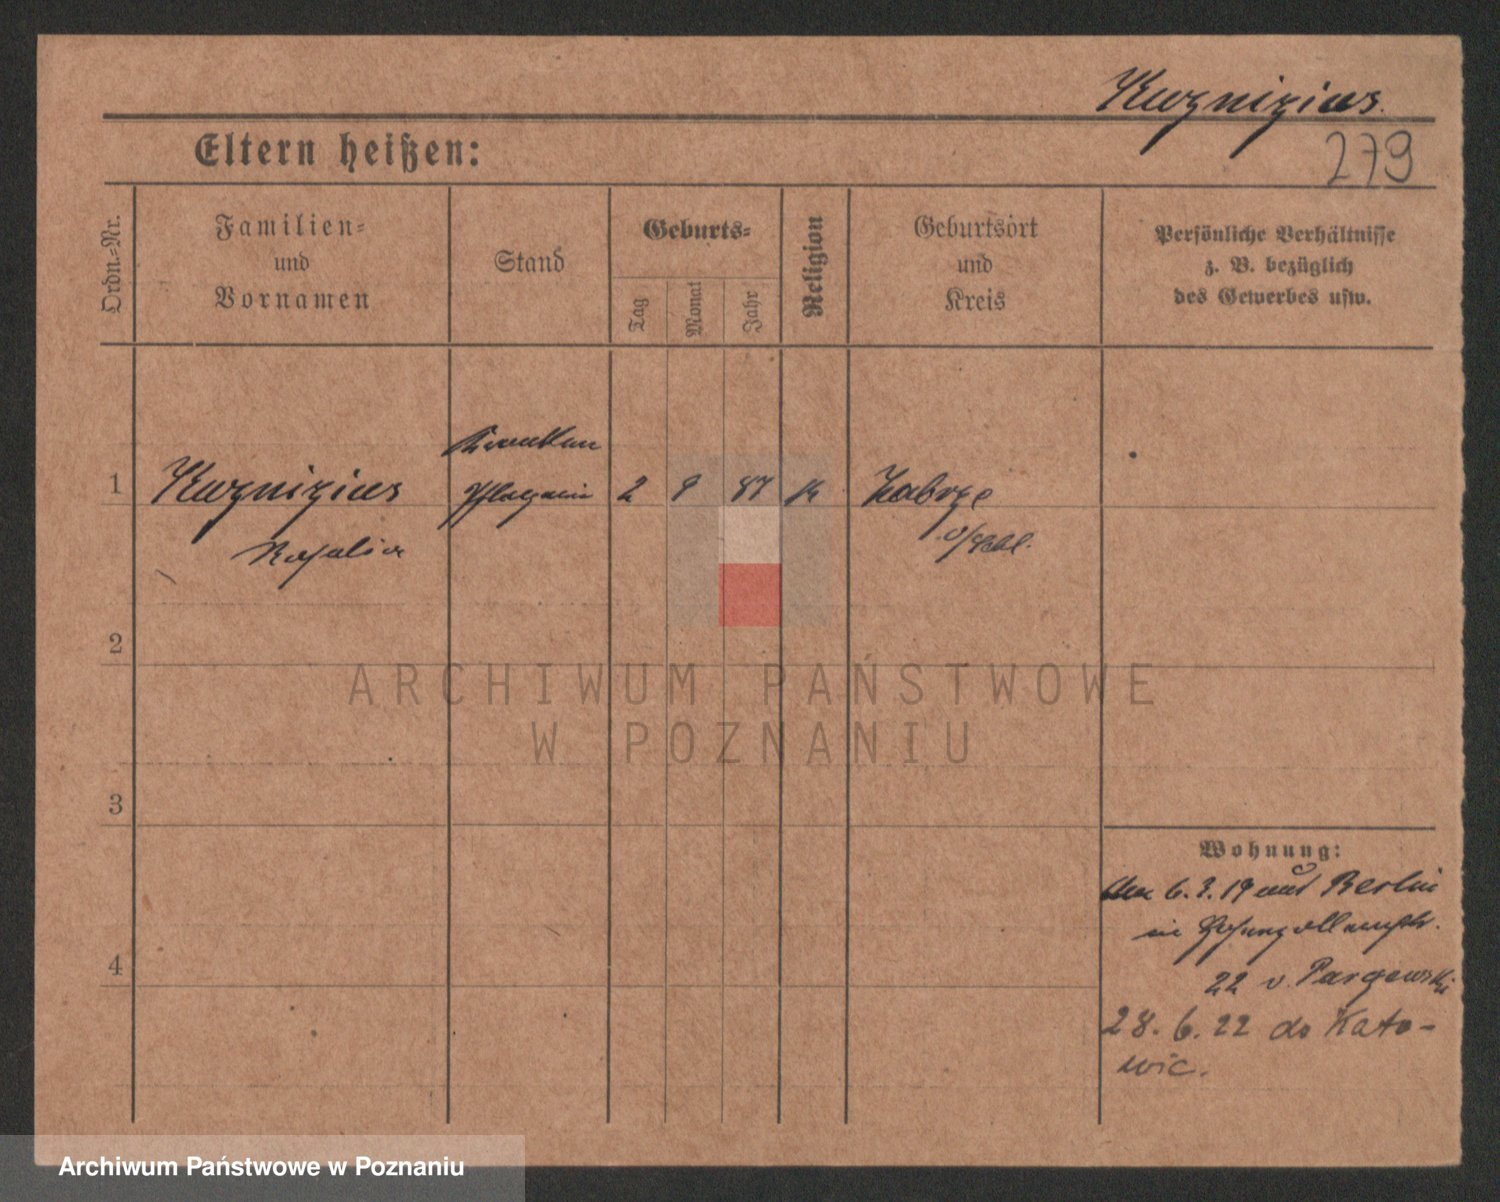 Kuznizius.
279
Eltern heißen:
Ordn.-Nr.
Familien-
und
Vornamen
Stand
Geburts-
Tag
Monat
Jahr
Religion
Geburtsort
und
Kreis
Persönliche Verhältnisse
z. B. bezüglich
des Gewerbes usw.
Kranken
1 Kuznizius Pflegerin 2 9 87 k Zabrze
Rosalia O/Schl.
2
ARCHIWUM PAŃSTWOWE
W POZNANIU
3
Wohnung:
6.3.19 aus Berlin
in Hohenzollernstr.
4
22 v. Pargowski
28. 6. 22 do Kato-
wic.
Archiwum Państwowe w Poznaniu